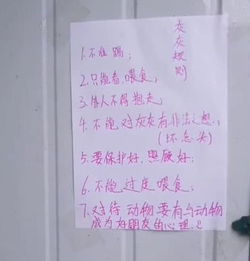 灰灰规则
1.不准踢;
2.只能看、喂食;
3.别人不得抱走
4.不能对灰灰有非法之想;
(坏念头)
5.要保护好、照顾好;
6.不能过度喂食;
7.对待动物要有与动物
成为好朋友的心理。